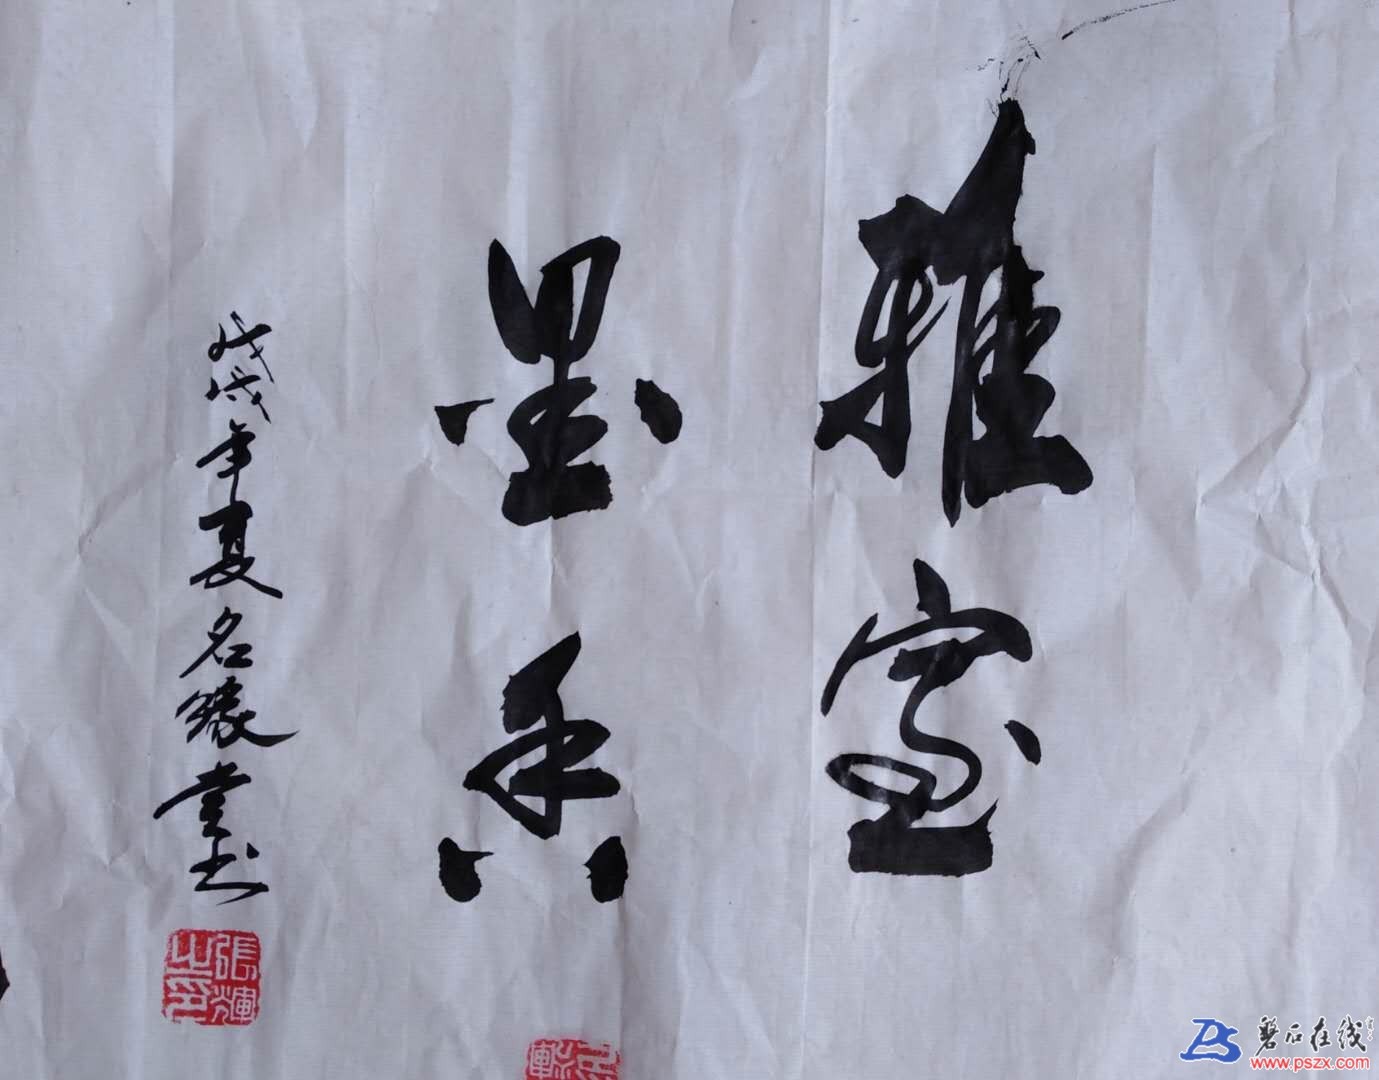 雅室
墨香
戊戌年夏名緣堂书
張輝之印
磐石在线
www.pszx.com